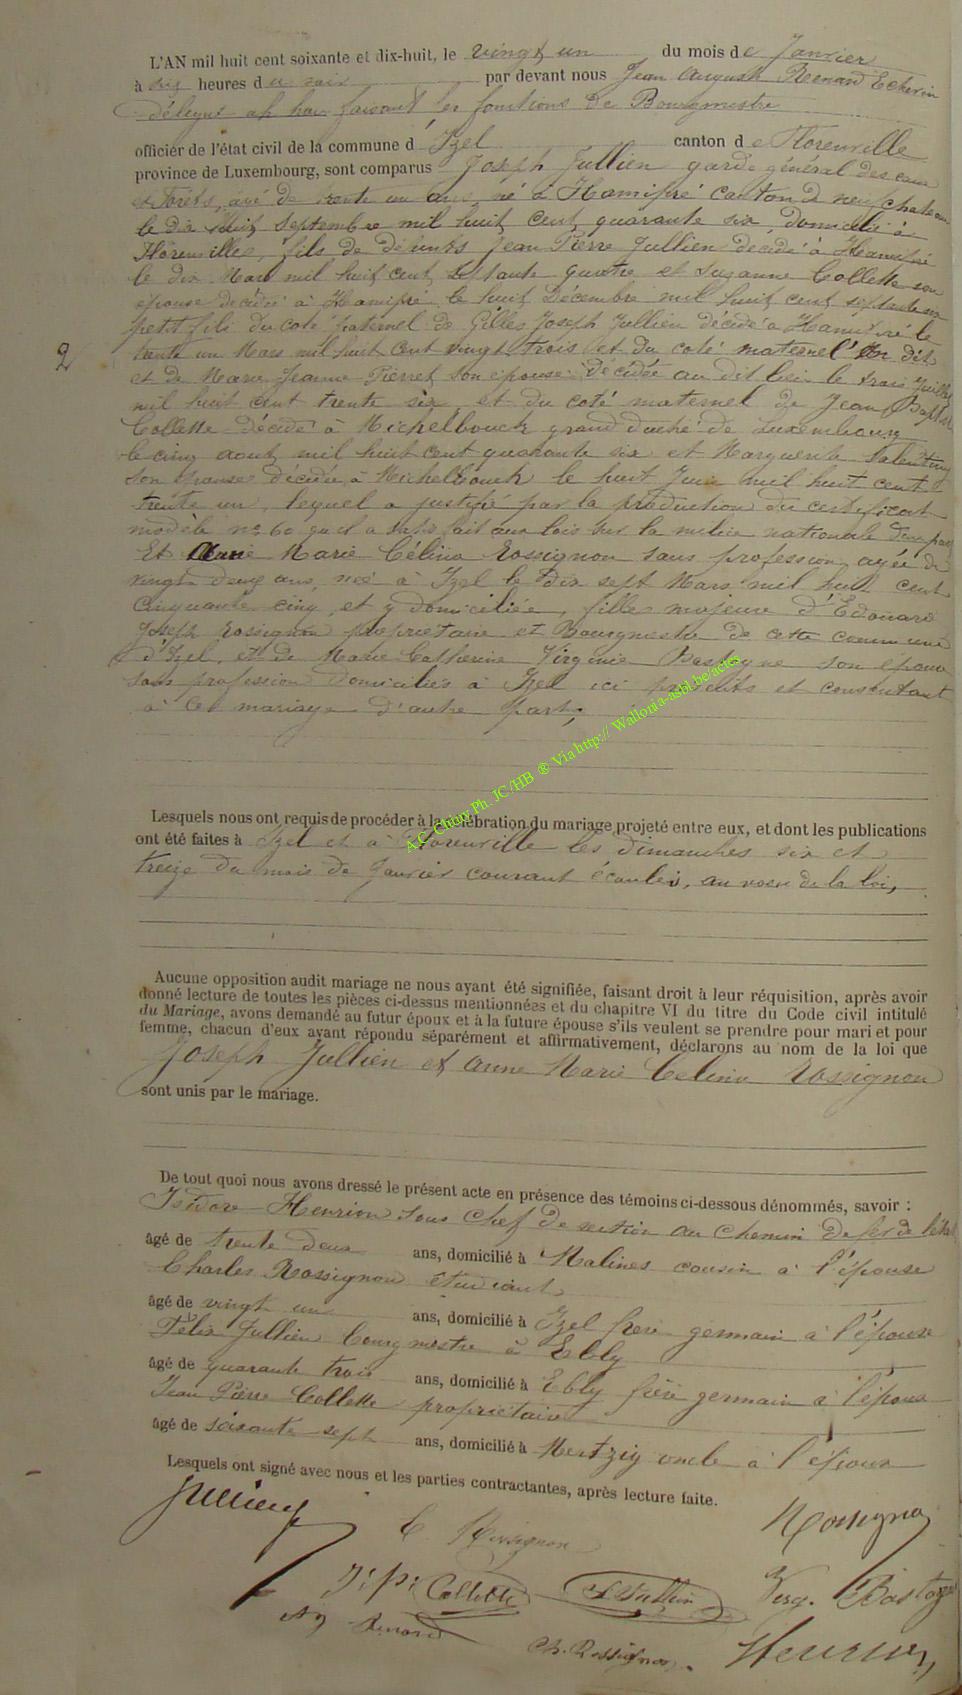 L'AN mil huit cent soixante et dix-huit, le vingt un du mois de Janvier
à six heures du soir par devant nous Jean Auguste Renard Echevin
délégué faisant les fonctions de Bourgmestre
officier de l'état civil de la commune d Izel canton de Florenville
province de Luxembourg, sont comparus Joseph Jullien garde général des eaux
et Forêts, âgé de trente un ans né à Hamipré canton de neufchateau
le dix huit Septembre mil huit cent quarante six, domicilié à
Florenville, fils de défunts Jean Pierre Jullien décédé à Hamipré
le dix Mars mil huit cent quatre et Suzanne Collette son
épouse décédée à Hamipré le huit Décembre mil huit cent septante six
petit fils du coté paternel de Gilles Joseph Jullien décédé à Hamipré le
2
trente un Mars mil huit cent vingt trois et du coté maternel
et de Marie Jeanne Pierret son épouse décédée au dit lieu le trois Juillet
mil huit cent trente six, et du coté maternel de Jean Baptiste
Collette décédé à Michelbouck grand duché de Luxembourg
le cinq aout mil huit cent quarante six et Marguerite
son épouse décédée à Michelbouck le huit Juin mil huit cent
trente un, lequel a justifié par la production du certificat
modèle n° 60 qu'il a satisfait aux lois sur la milice nationale d'une part
Et Anne Marie Célina Rossignon sans profession agée de
vingt deux ans, née à Izel le dix sept Mars mil huit cent
cinquante cinq, et y domiciliée, fille majeure d'Edouard
Joseph Rossignon propriétaire et Bourgmestre de cette commune
d'Izel, et de Marie Catherine Virginie Bastogne son épouse
sans profession domiciliés à Izel ici présents et consentant
à ce mariage d'autre part;
A.C. Chiny Ph. JC/HB ® Via http:// Wallonia-asbl.be/actes
Lesquels nous ont requis de procéder à la célébration du mariage projeté entre eux, et dont les publications
ont été faites à Izel et à Florenville les dimanches six et
treize du mois de Janvier courant écoulés, au vœu de la loi,
Aucune opposition audit mariage ne nous ayant été signifiée, faisant droit à leur réquisition, après avoir
donné lecture de toutes les pièces ci-dessus mentionnées et du chapitre VI du titre du Code civil intitulé
du Mariage, avons demandé au futur époux et à la future épouse s'ils veulent se prendre pour mari et pour
femme, chacun d'eux ayant répondu séparément et affirmativement, déclarons au nom de la loi que
Joseph Jullien et Anne Marie Celina Rossignon
sont unis par le mariage.
De tout quoi nous avons dressé le présent acte en présence des témoins ci-dessous dénommés, savoir :
Isidore Henrion sous chef de section au chemin de fer de l'état
âgé de trente deux ans, domicilié à Malines cousin à l'épouse
Charles Rossignon étudiant
âgé de vingt un ans, domicilié à Izel frère germain à l'épouse
Félix Jullien bourgmestre à Ebly
âgé de quarante trois ans, domicilié à Ebly frère germain à l'époux
Jean Pierre Collette propriétaire
âgé de soixante sept ans, domicilié à Mertzig oncle à l'époux
Lesquels ont signé avec nous et les parties contractantes, après lecture faite.
Jullien J
C. Rossignon
Rossignon
J. P. Collette
F. Jullien
Virg. Bastogne
Aug Renard
Ch. Rossignon
Henrion